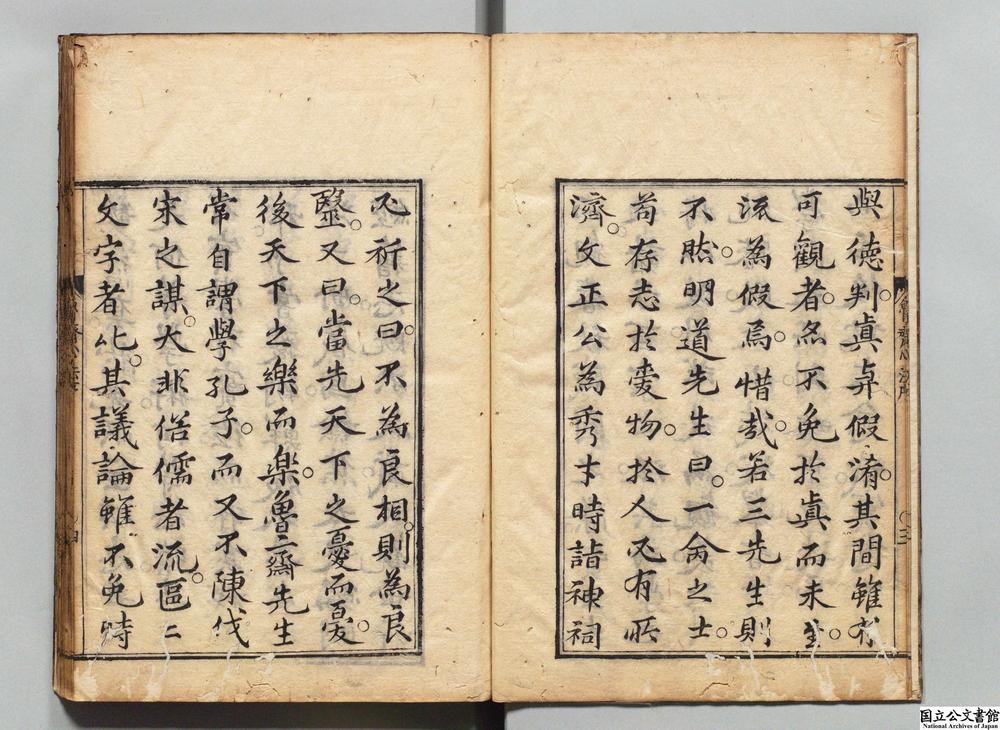 與德判。眞與假淆。其間雖有
可觀者。終不免於眞而未𫝹。
流為假焉。惜哉。若三先生則
不然。明道先生曰。一命之士。
苟存志於愛物。於人必有所
濟。文正公為秀才時詣神祠
必祈之。曰不為良相。則為良
醫。又曰。當先天下之憂而憂。
後天下之樂而樂。魯齋先生
常自謂學孔子。而又不陳伐
宋之謀。大非俗儒者流。區〻
文字者比。其議論雖不免時
心法序
三
四
国立公文書館
National Archives of Japan